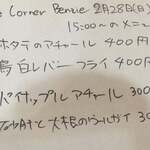 e Corner Benzie 2月28日(日)
15:00〜の メニ
ホタテのアチャール 400円
鳥白レバー フライ 400円
パイナップル アチャール 300
と大根の 30